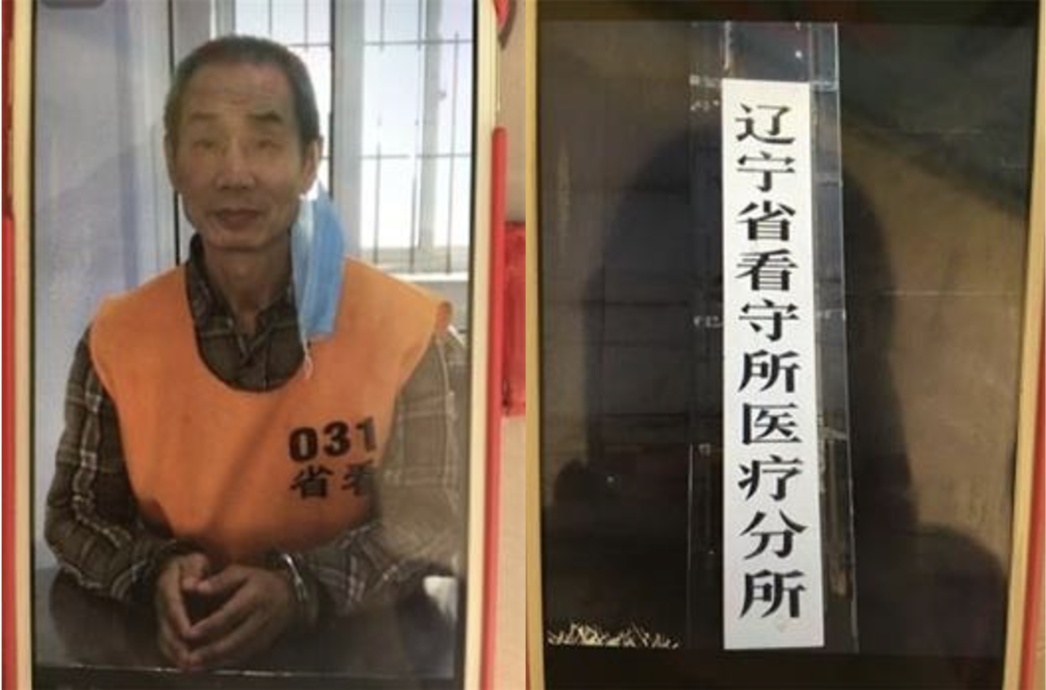 031
省看
辽宁省看守所医疗分所